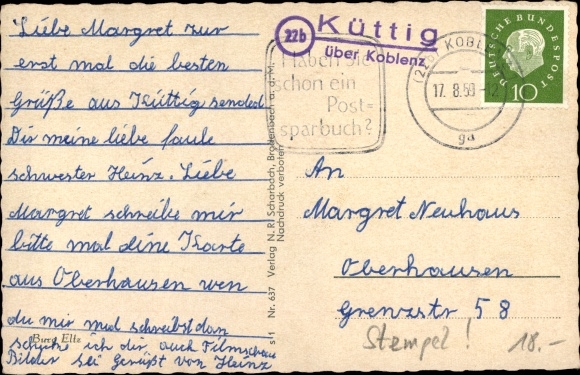 Liebe Margret zur
erst mal die besten
Grüße aus Küttig sended
Dir meine liebe faule
schwester Heinz. Liebe
Margret schreibe mir
bitte mal eine Karte
aus Oberhausen wen
du mir mal schreibst dan
schicke ich dir auch Filmschau
Bilder sei Gerüßt von Heinz
Burg Eltz
s 1 Nr. 637 Verlag N. R. Scharbach, Brodenbach a. d. M.
Nachdruck verboten
22b
Küttig
über Koblenz
Haben Sie
schon ein
Post=
sparbuch?
KOBLENZ
17. 8. 59
ga
DEUTSCHE BUNDESPOST
10
An
Margret Neuhaus
Oberhausen
Grenzstr 58
Stempel! 18.-